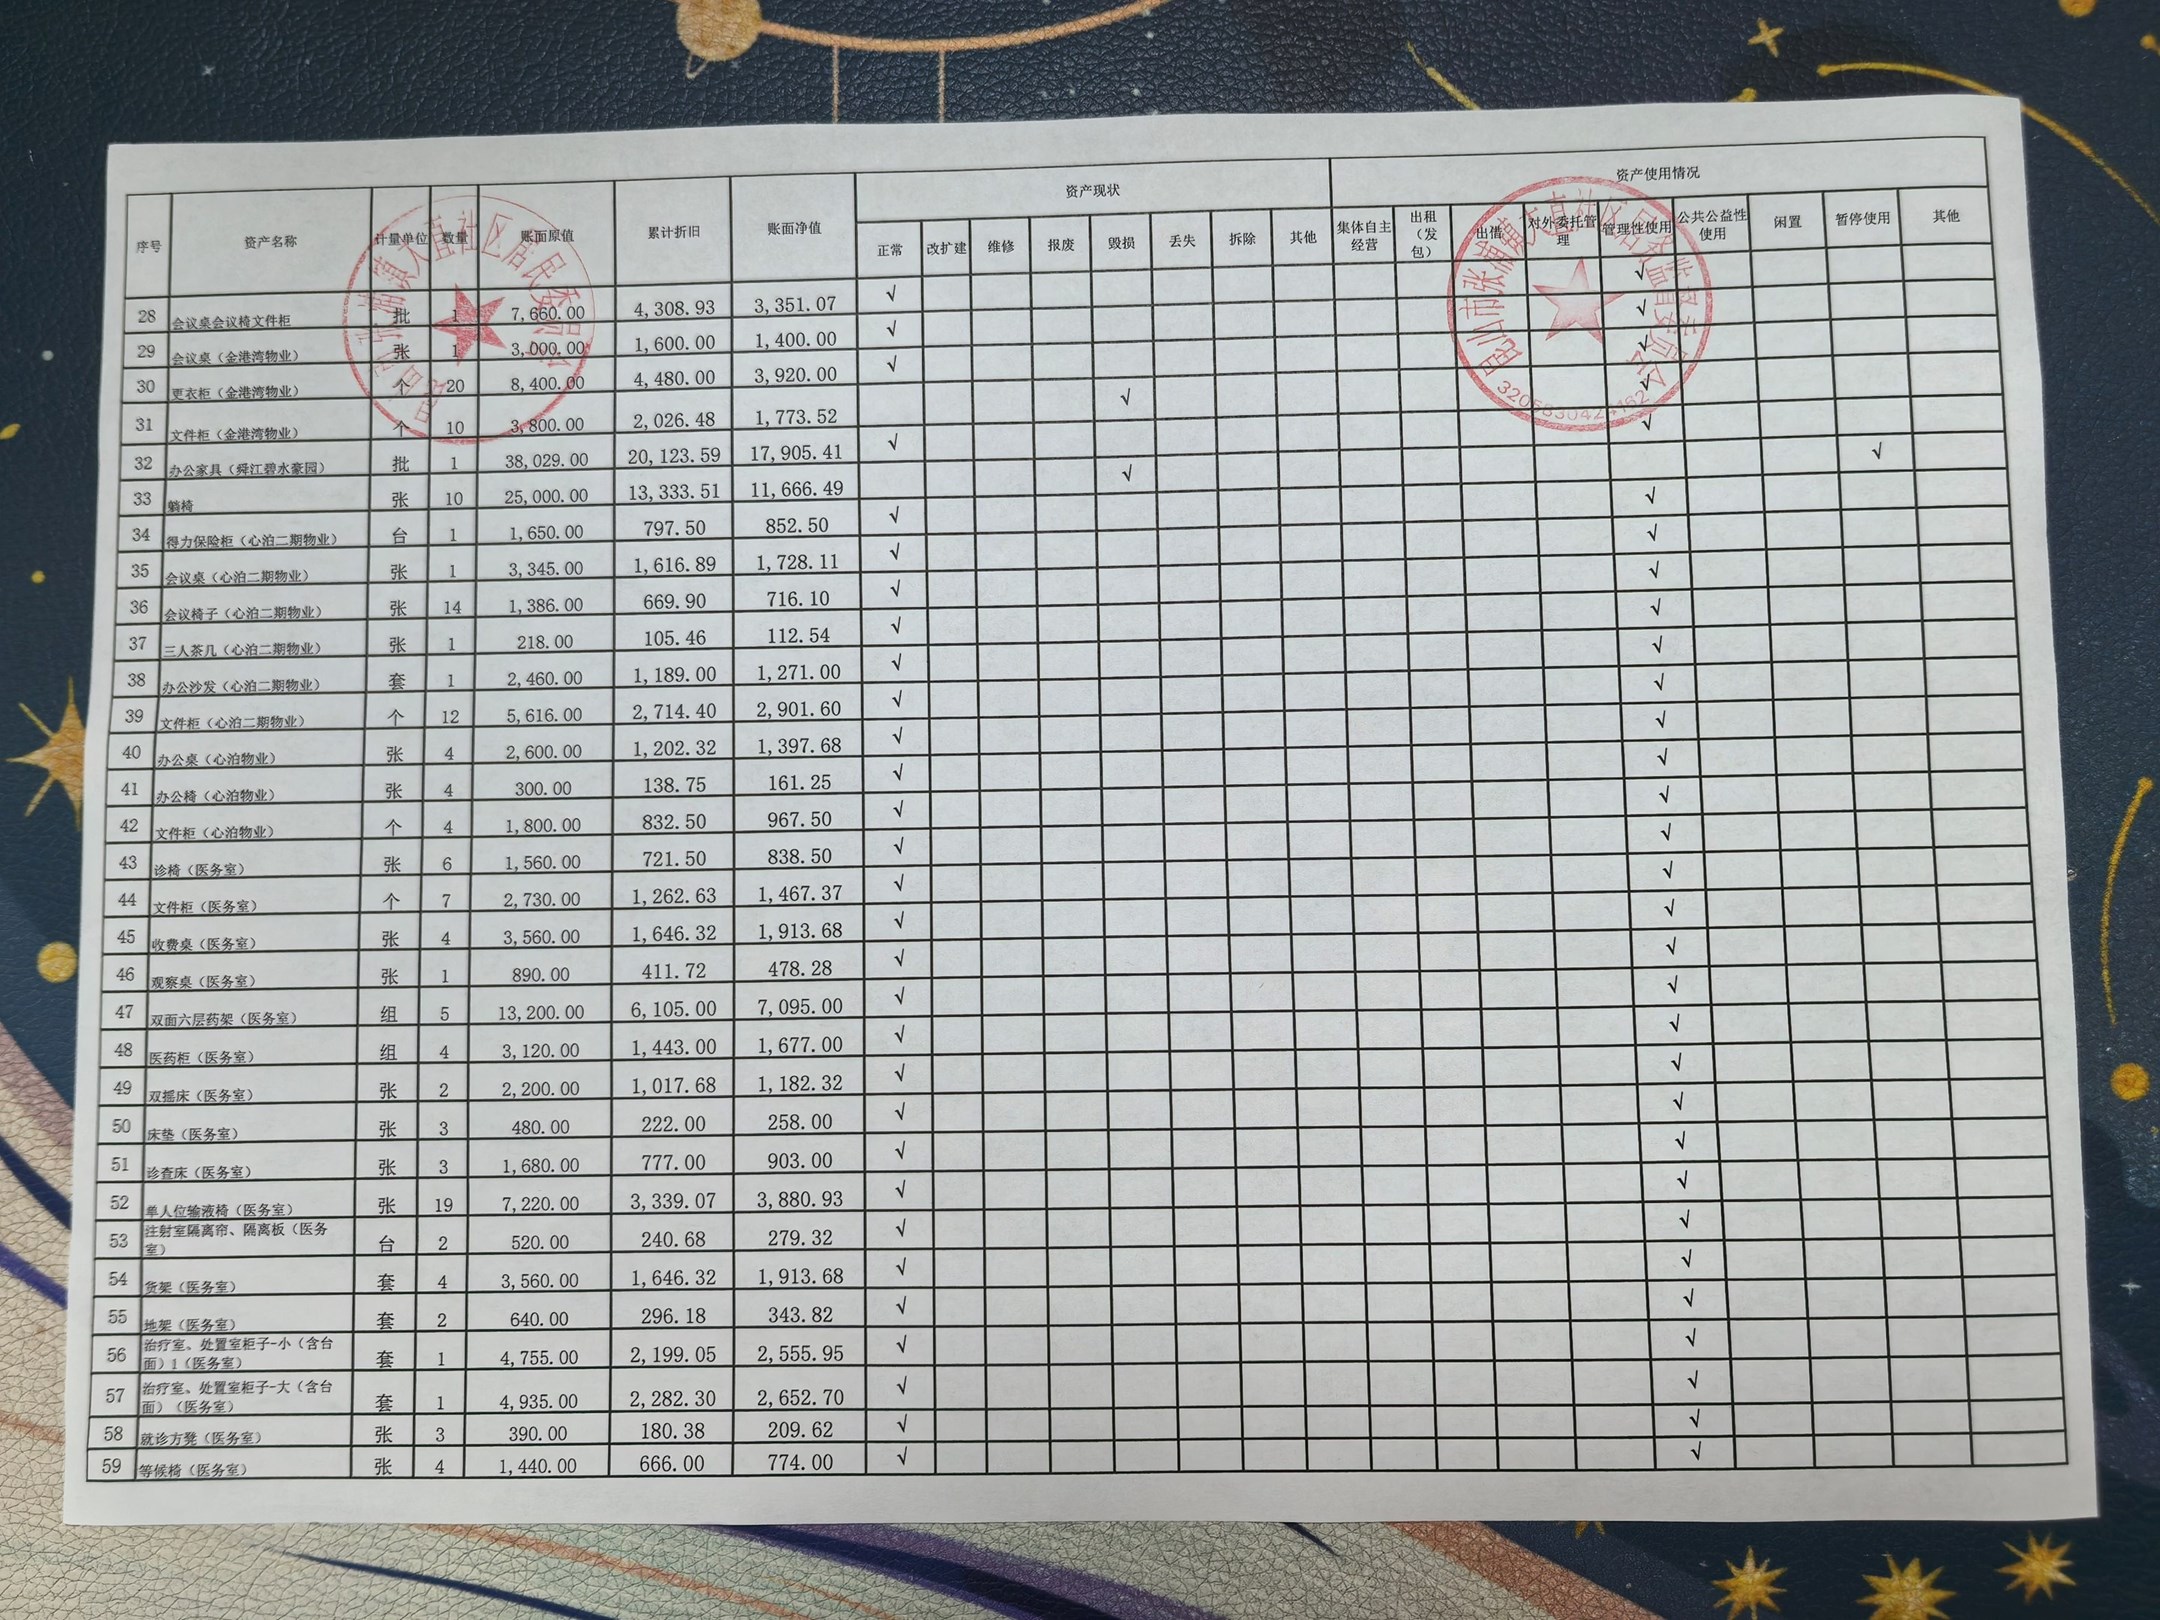 资产现状 资产使用情况
序号 资产名称 计量单位 数量 账面原值 累计折旧 账面净值 正常 改扩建 维修 报废 毁损 丢失 拆除 其他 集体自主经营 出租（发包） 出借 对外委托管理 管理性使用 公共公益性使用 闲置 暂停使用 其他
28 会议桌会议椅文件柜 批 1 7,660.00 4,308.93 3,351.07 √ √
29 会议桌（金港湾物业） 张 1 3,000.00 1,600.00 1,400.00 √ √
30 更衣柜（金港湾物业） 个 20 8,400.00 4,480.00 3,920.00 √ √
31 文件柜（金港湾物业） 个 10 3,800.00 2,026.48 1,773.52 √ √
32 办公家具（舜江碧水豪园） 批 1 38,029.00 20,123.59 17,905.41 √ √
33 躺椅 张 10 25,000.00 13,333.51 11,666.49 √ √
34 得力保险柜（心泊二期物业） 台 1 1,650.00 797.50 852.50 √ √
35 会议桌（心泊二期物业） 张 1 3,345.00 1,616.89 1,728.11 √ √
36 会议椅子（心泊二期物业） 张 14 1,386.00 669.90 716.10 √ √
37 三人茶几（心泊二期物业） 张 1 218.00 105.46 112.54 √ √
38 办公沙发（心泊二期物业） 套 1 2,460.00 1,189.00 1,271.00 √ √
39 文件柜（心泊二期物业） 个 12 5,616.00 2,714.40 2,901.60 √ √
40 办公桌（心泊物业） 张 4 2,600.00 1,202.32 1,397.68 √ √
41 办公椅（心泊物业） 张 4 300.00 138.75 161.25 √ √
42 文件柜（心泊物业） 个 4 1,800.00 832.50 967.50 √ √
43 诊椅（医务室） 张 6 1,560.00 721.50 838.50 √ √
44 文件柜（医务室） 个 7 2,730.00 1,262.63 1,467.37 √ √
45 收费桌（医务室） 张 4 3,560.00 1,646.32 1,913.68 √ √
46 观察桌（医务室） 张 1 890.00 411.72 478.28 √ √
47 双面六层药架（医务室） 组 5 13,200.00 6,105.00 7,095.00 √ √
48 医药柜（医务室） 组 4 3,120.00 1,443.00 1,677.00 √ √
49 双摇床（医务室） 张 2 2,200.00 1,017.68 1,182.32 √ √
50 床垫（医务室） 张 3 480.00 222.00 258.00 √ √
51 诊查床（医务室） 张 3 1,680.00 777.00 903.00 √ √
52 单人位输液椅（医务室） 张 19 7,220.00 3,339.07 3,880.93 √ √
53 注射室隔离帘、隔离板（医务室） 台 2 520.00 240.68 279.32 √ √
54 货架（医务室） 套 4 3,560.00 1,646.32 1,913.68 √ √
55 地架（医务室） 套 2 640.00 296.18 343.82 √ √
56 治疗室、处置室柜子-小（含台面）1（医务室） 套 1 4,755.00 2,199.05 2,555.95 √ √
57 治疗室、处置室柜子-大（含台面）（医务室） 套 1 4,935.00 2,282.30 2,652.70 √ √
58 就诊方凳（医务室） 张 3 390.00 180.38 209.62 √ √
59 等候椅（医务室） 张 4 1,440.00 666.00 774.00 √ √